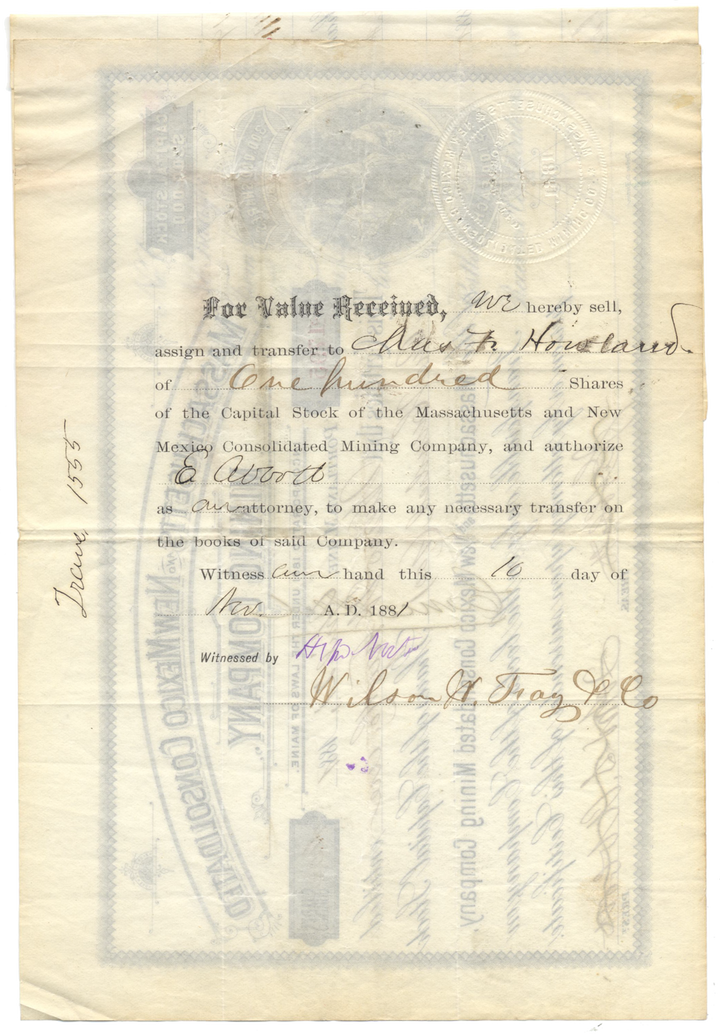 For Value Received, We hereby sell,
assign and transfer to Chas F. Howland.
of One hundred Shares
of the Capital Stock of the Massachusetts and New
Mexico Consolidated Mining Company, and authorize
E Abbott
as our attorney, to make any necessary transfer on
the books of said Company.
Witness our hand this 10 day of
Nov. A. D. 1881
Witnessed by
Wilson W. Fay & Co
Trans. 1555